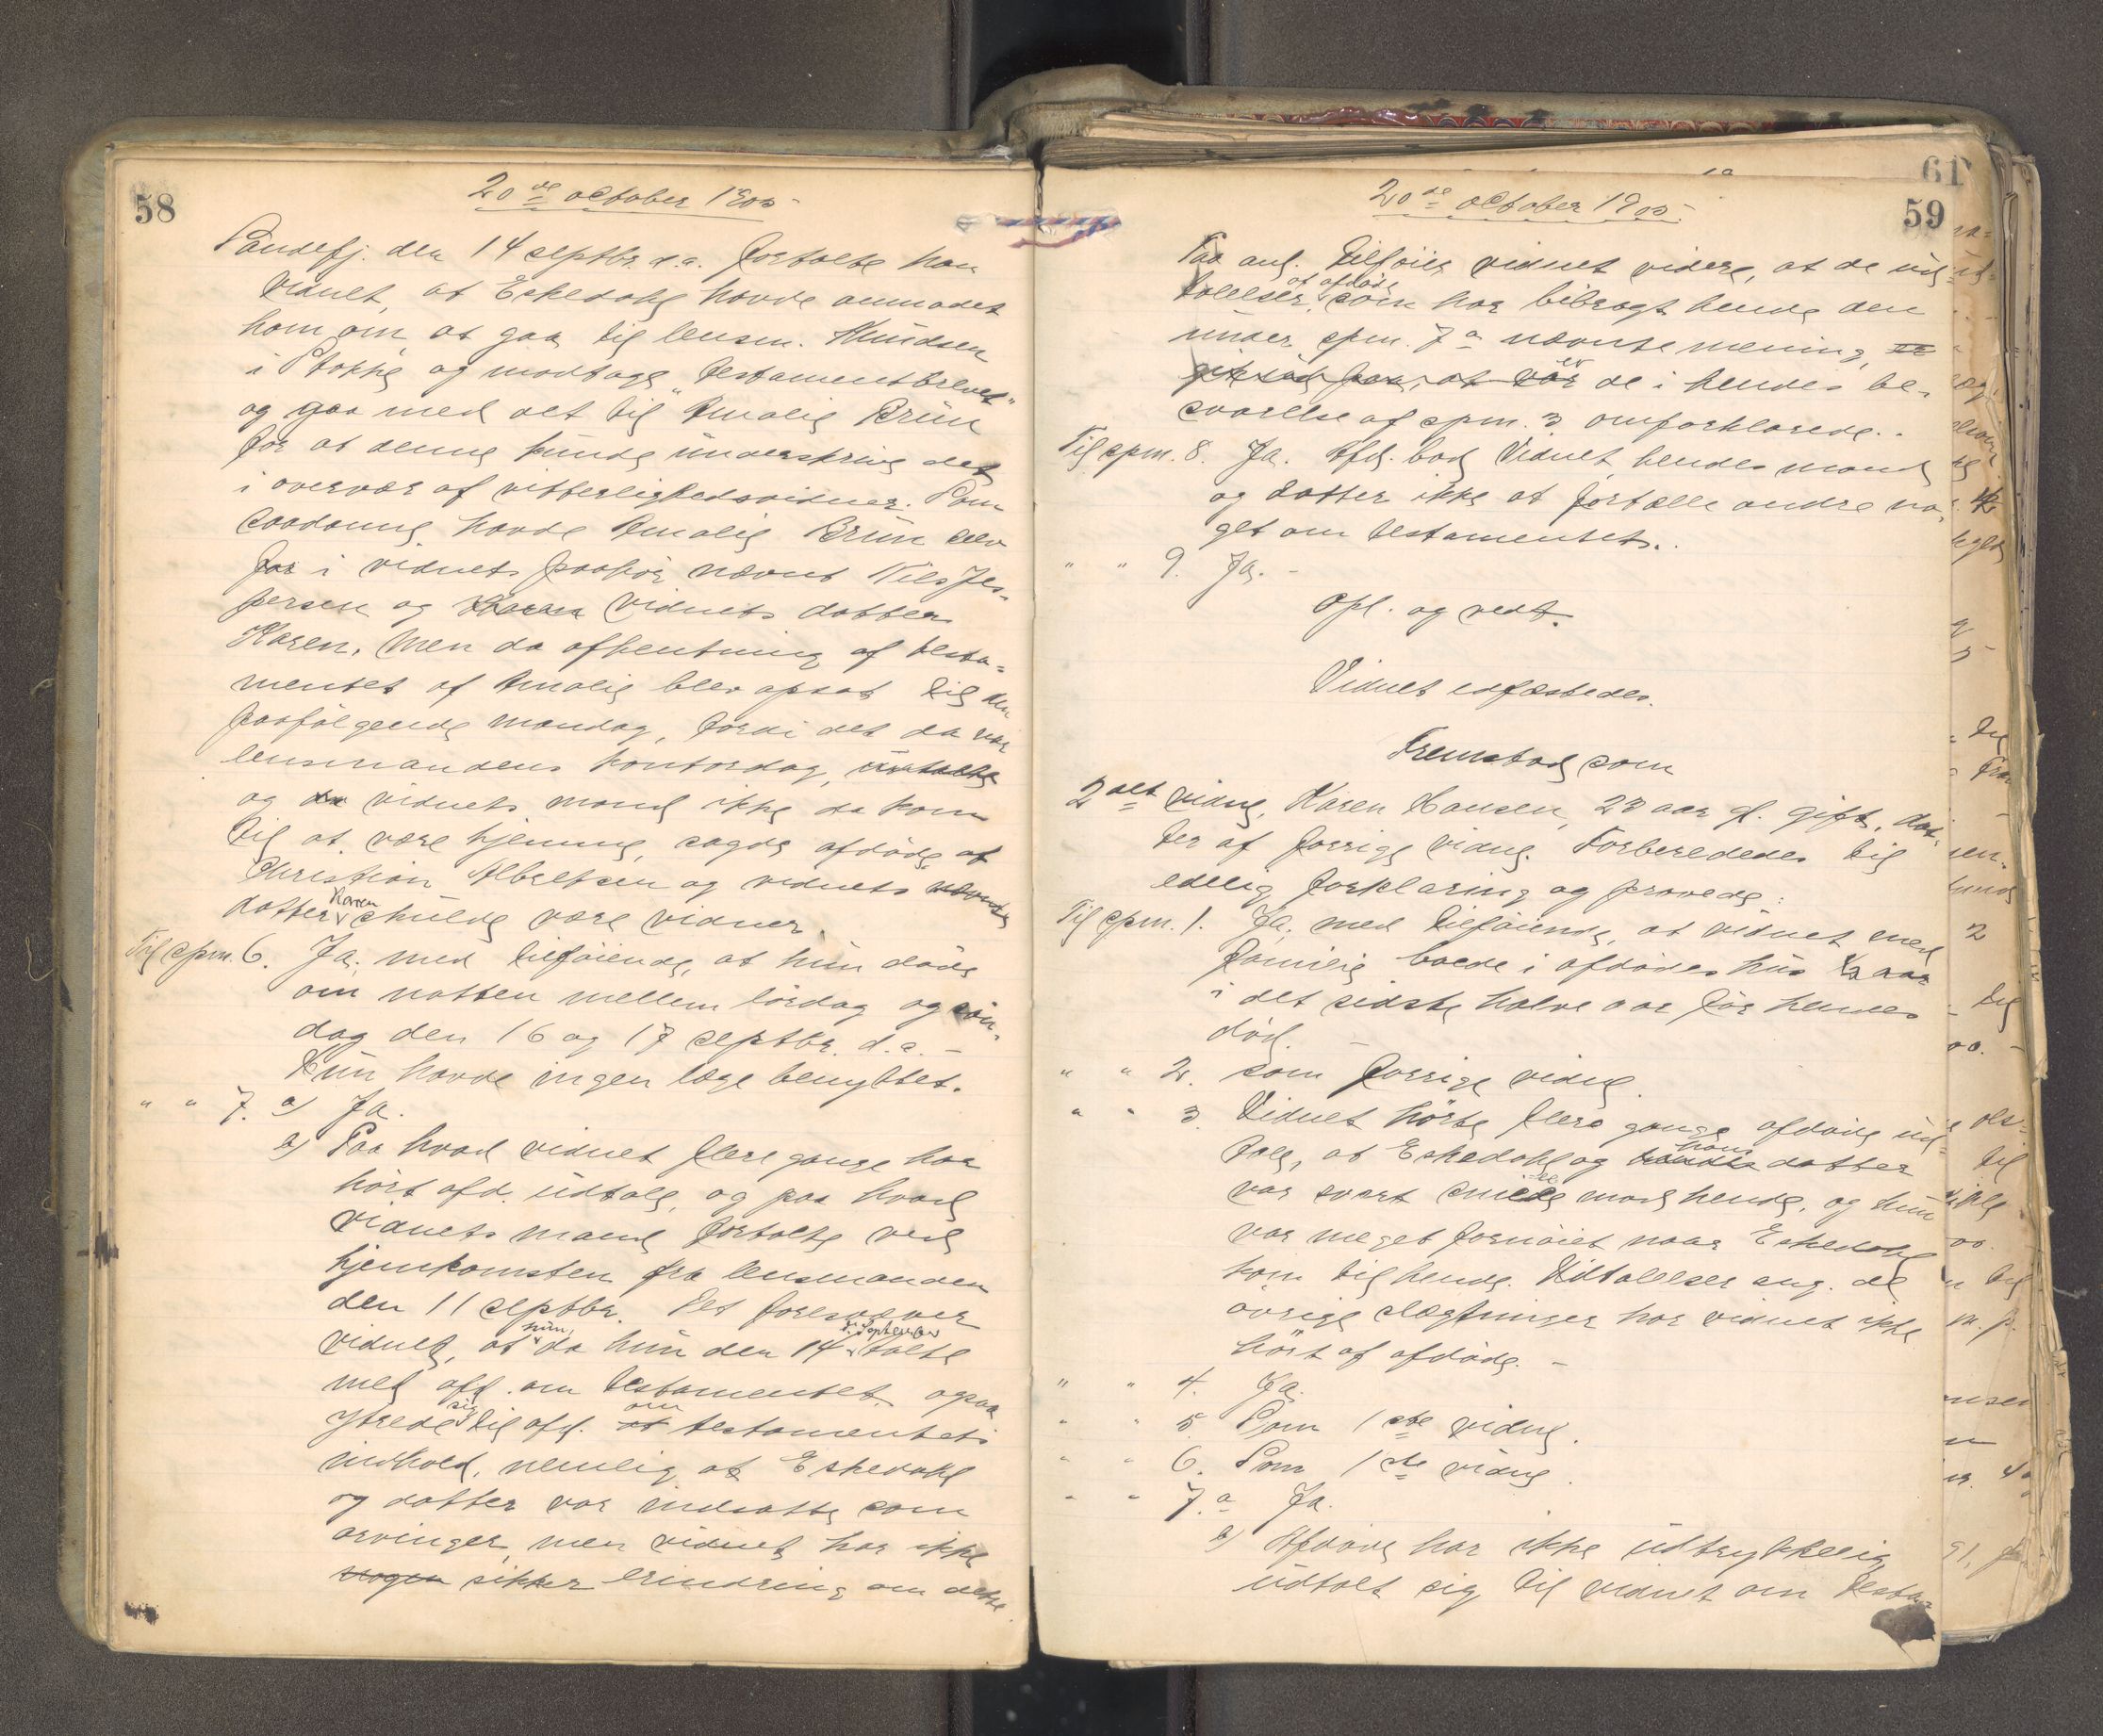 58
20de october 1905
Sandefj. den 14 septbr. d.a. fortalte han
vidnet, at Eskedahl havde anmodet
ham om at gaa til lensm. Knudsen
i Stokke og modtage „testamentbrevet"
og gaa med det til Amalie Brun
for at denne kunde underskrive det
i overvær af vitterlighedsvidner. Som
saadanne havde Amalie Brun selv
før i vidnets paahør nævnt Nils Jes-
persen og vidnets datter
Karen. Men da afhentning af testa-
mentet af Amalie blev opsat til den
paafølgende mandag, fordi det da var
lensmandens kontordag,
og da vidnets mand ikke da kom
til at være hjemme, sagde afdøde at
Christian Albretsen og vidnets
datter Karen skulde være vidner.
Til spm. 6. Ja, med tilføiende, at hun døde
om natten mellem lørdag og søn-
dag den 16 og 17 septbr. d.a. –
Hun havde ingen læge benyttet.
" " 7. a) Ja.
b) Paa hvad vidnet flere gange har
hørt afd. udtale, og paa hvad
vidnets mand fortalte ved
hjemkomsten fra lensmanden
den 11 septbr. Det foresvæver
vidnet, at hun, da hun den 14 september talte
med afd. om testamentet, ogsaa
ytrede sig til afd. om testamentets
indhold, nemlig at Eskedahl
og datter var indsatte som
arvinger, men vidnet har ikke
nogen sikker erindring om dette.
61
59
20de october 1905.
Paa anl. tilføier vidnet videre, at de ud-
talelser af afdøde, som har bibragt hende den
under spm. 7a nævnte mening,
gik ud paa, at var er de i hendes be-
svarelse af spm. 3 omforklarede.
Til spm. 8. Ja. Afd. bad vidnet, hendes mand
og datter ikke at fortælle andre no-
get om testamentet.
" " 9. Ja. –
Opl. og vedt.
Vidnet edfæstedes.
Fremstod som
2det vidne, Karen Hansen, 23 aar gl. gift, dat-
ter af forrige vidne. Forberededes til
edelig forklaring og provede:
Til spm. 1. Ja, med tilføiende, at vidnet med
familie boede i afdødes hus ½ aar
i det sidste halve aar før hendes
død. –
" " 2. Som forrige vidne.
" " 3. Vidnet hørte flere gange afdøde ud-
tale, at Eskedahl og hans datter
var svært snille mod hende, og hun
var meget fornøiet naar Eskedahl
kom til hende. Udtalelser ang. de
øvrige slægtninger har vidnet ikke
hørt af afdøde. –
" " 4. Ja.
" " 5. Som 1ste vidne.
" " 6. Som 1ste vidne.
" " 7.a Ja.
b) Afdøde har ikke udtrykkelig
udtalt sig til vidnet om testa-